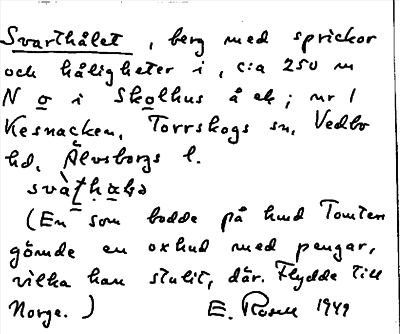 Svarthålet, berg med sprickor
och håligheter i, c:a 250 m
N o i Skolhus å ek; nr 1
Kesnacken, Torrskogs sn, Vedbo
hd, Älvsborgs l.
(En som bodde på hmd Tomten
gömde en oxhud med pengar,
vilka han stulit, där. Flydde till
Norge.) E. Rosell 1949